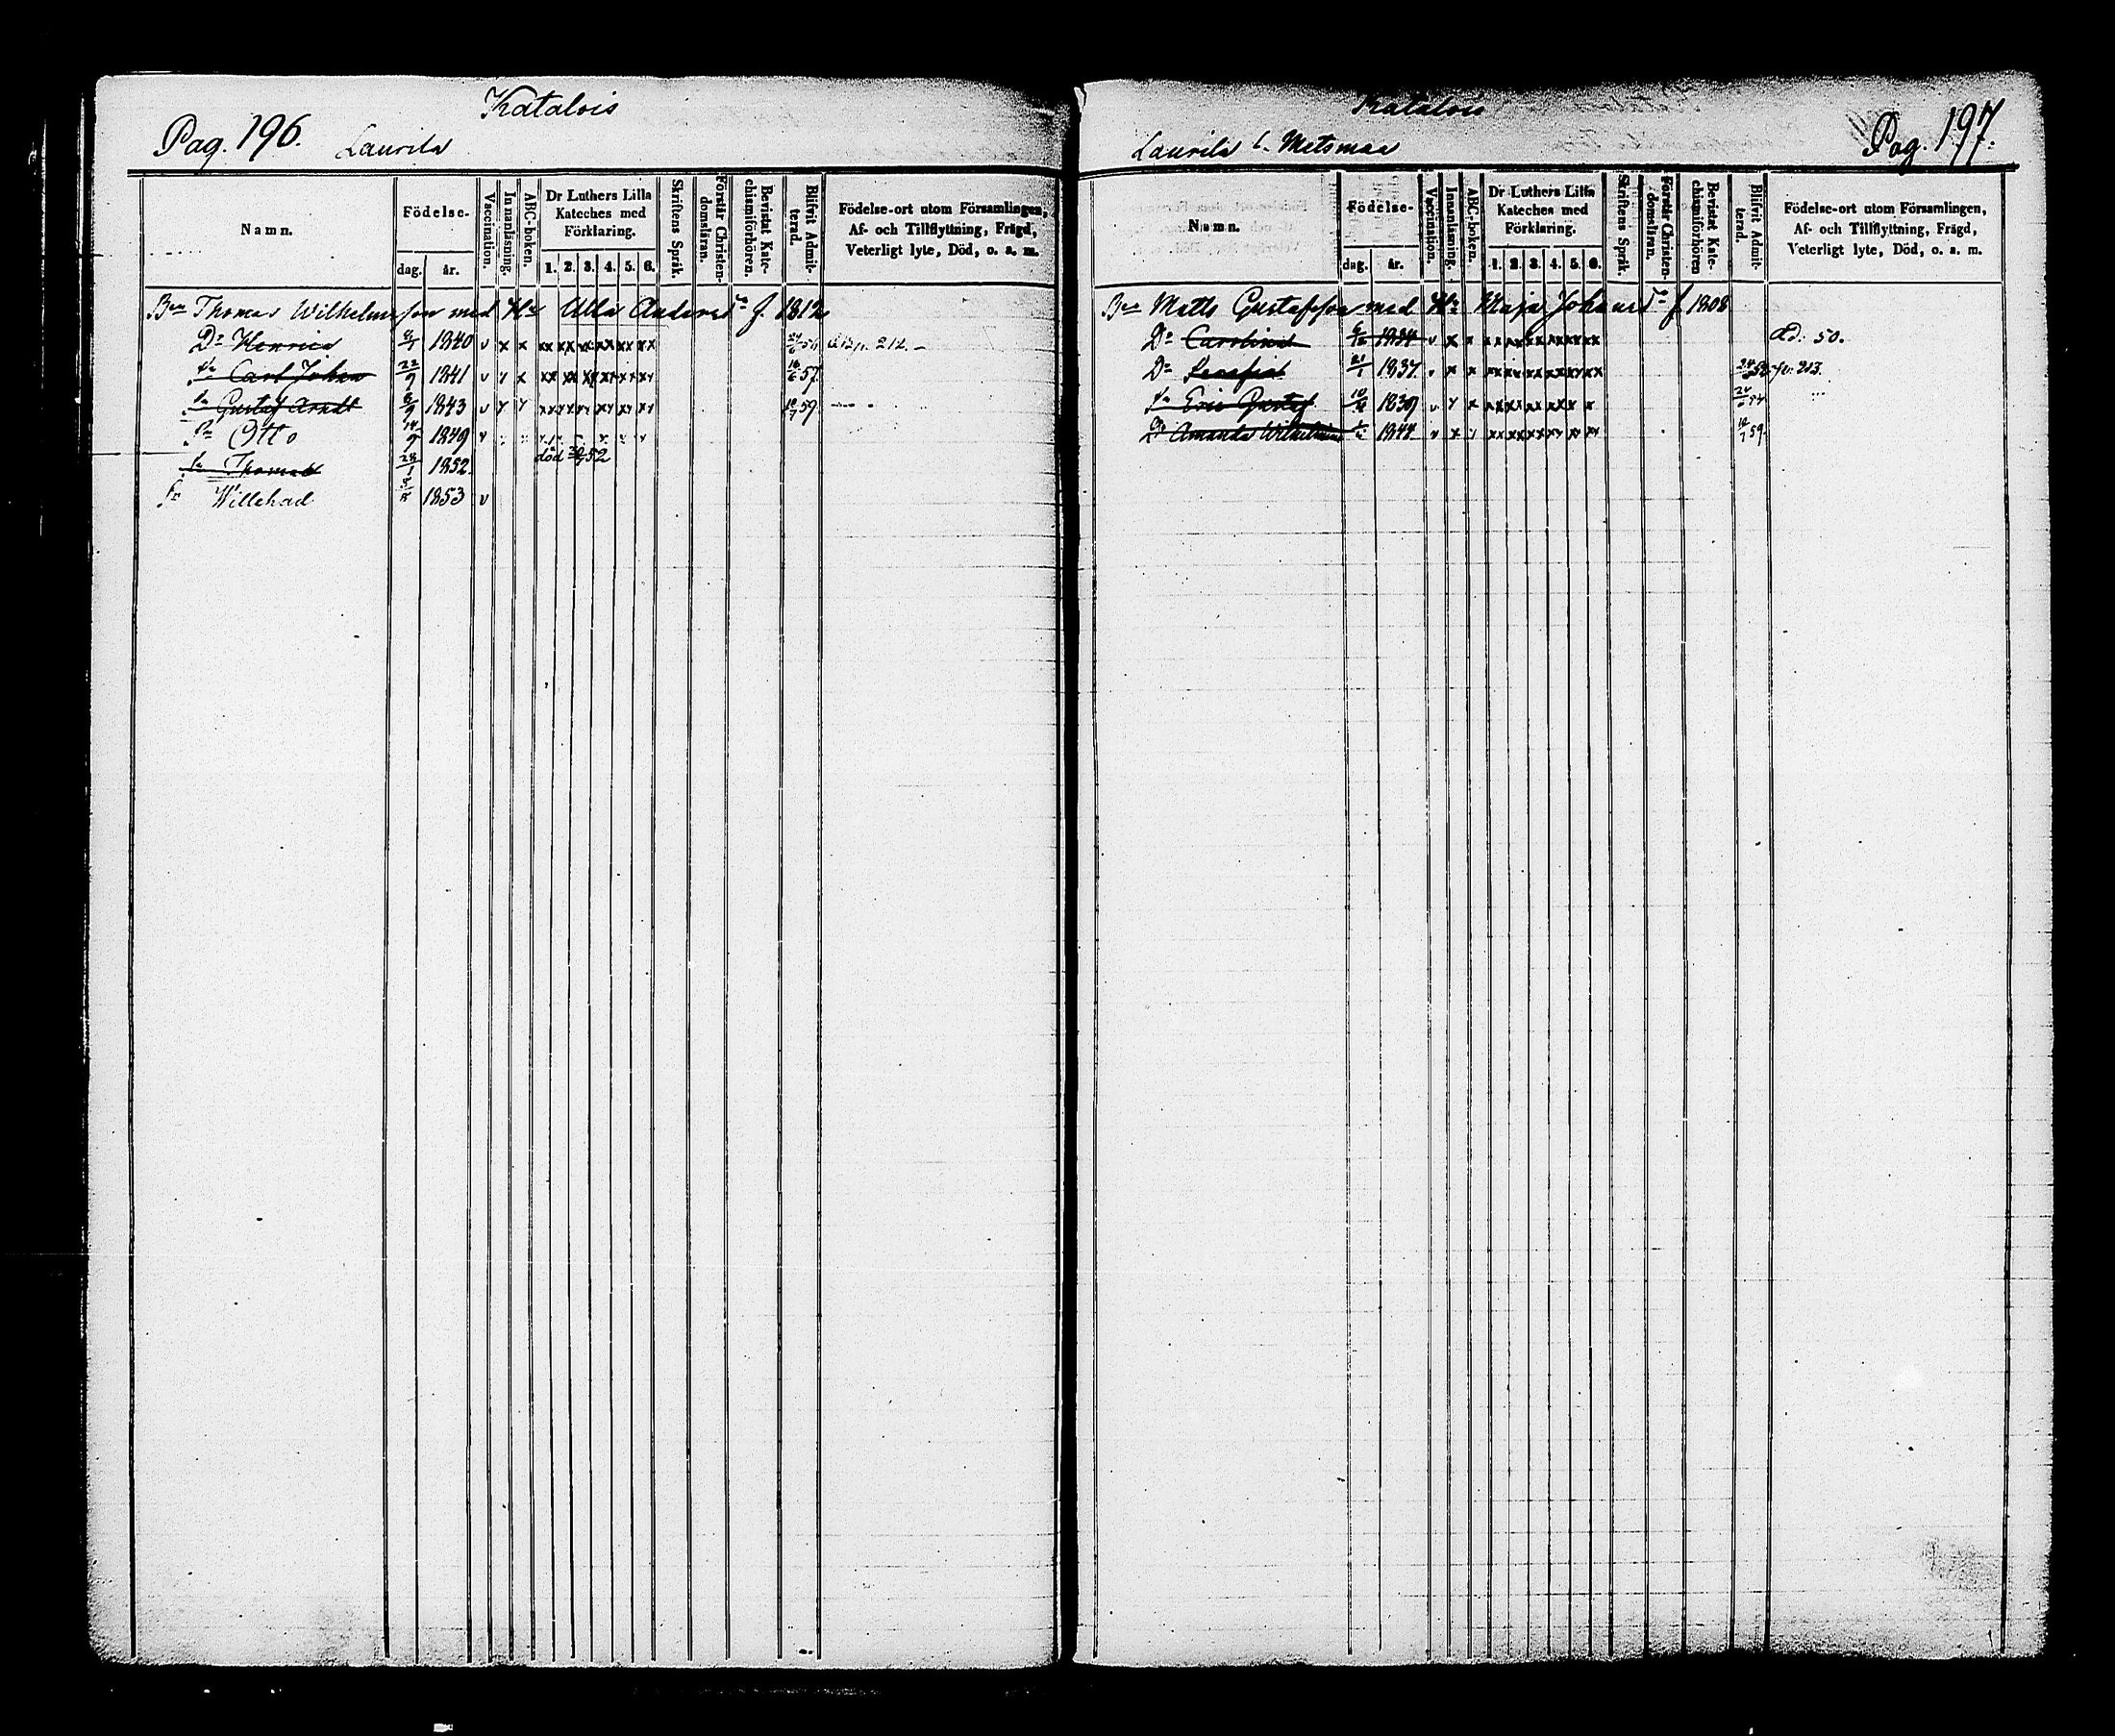 Katalois
Pag. 196. Laurila
Namn.
Födelse-
dag. år.
Vaccination.
Innanläsning.
ABC-boken.
Dr Luthers Lilla
Kateches med
Förklaring.
1. 2. 3. 4. 5. 6.
Skriftens Språk.
Förstår Christen-
domsläran.
Bevistat Kate-
chismiförhören.
Blifvit Admit-
terad.
Födelse-ort utom Församlingen,
Af- och Tillflyttning, Frägd,
Veterligt lyte, Död, o. a. m.
Thomas Wilhelmsson med Hu Ulla Andersd:r f. 1812
Dr Henrica 1840 v x x xx xx xx xx xx xx 56 p. 212.
Carl Johan 22/9 1841 v y x 57
Gustaf 1843 v 59
Otto 1849
Thomas 28/1 1852 död 52
Sn Willehad 1853 v
Katalois
Laurila l. Metsmaa
Pag. 197.
Namn.
Födelse-
dag. år.
Vaccination.
Innanläsning.
ABC-boken.
Dr Luthers Lilla
Kateches med
Förklaring.
1. 2. 3. 4. 5. 6.
Skriftens Språk.
Förstår Christen-
domsläran.
Bevistat Kate-
chismiförhören
Blifvit Admit-
terad.
Födelse-ort utom Församlingen,
Af- och Tillflyttning, Frägd,
Veterligt lyte, Död, o. a. m.
Matts Gustafsson med Hu Maja Johansd:r f 1808
Dr Carolina 1834 v x x xx xx xx xx xx xx Ad. 50.
Dr Serafia 21/1 1837 x x xx xx xx xx xx xx p. 213.
Eric Gustaf 1839
Dr Amanda Wilhelmina 1844 59.